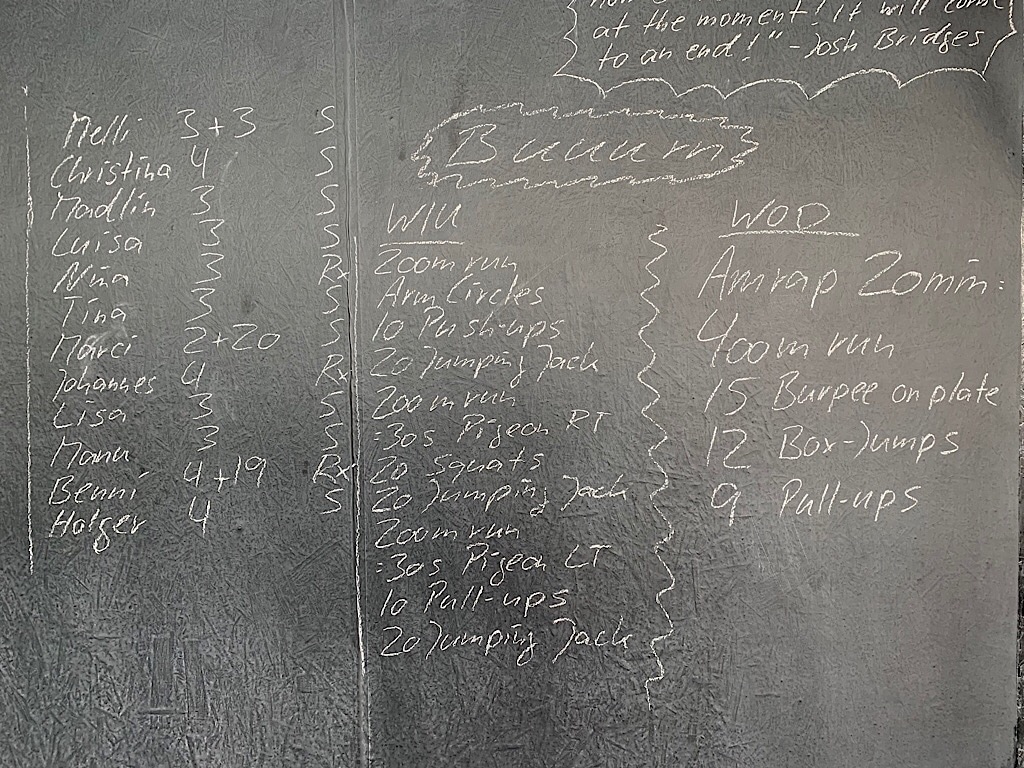 at the moment! It will come
to an end!" - Josh Bridges
Buuurn
Melli 3+3 S
Christina 4 S
Madlin 3 S
Luisa 3 S
Nina 3 Rx
Tina 3 S
Marci 2+20 S
Johannes 4 Rx
Lisa 3 S
Manu 3 S
Benni 4+19 Rx
Holger 4 S
WU
200m run
Arm Circles
10 Push-ups
20 Jumping Jack
200m run
:30s Pigeon RT
20 Squats
20 Jumping Jack
200m run
:30s Pigeon LT
10 Pull-ups
20 Jumping Jack
WOD
Amrap 20min:
400m run
15 Burpee on plate
12 Box-Jumps
9 Pull-ups